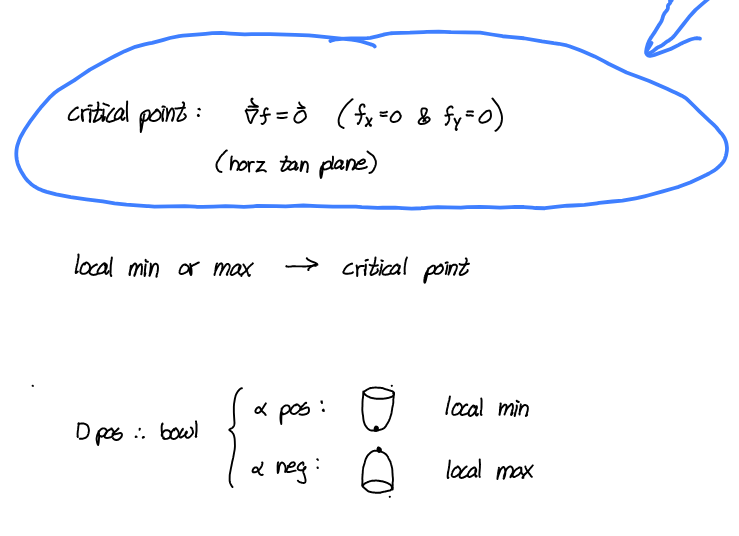 critical point: ∇⃗f = 0⃗ (fₓ=0 & fᵧ=0)
(horz tan plane)
local min or max → critical point
D pos ∴ bowl
α pos: local min
α neg: local max